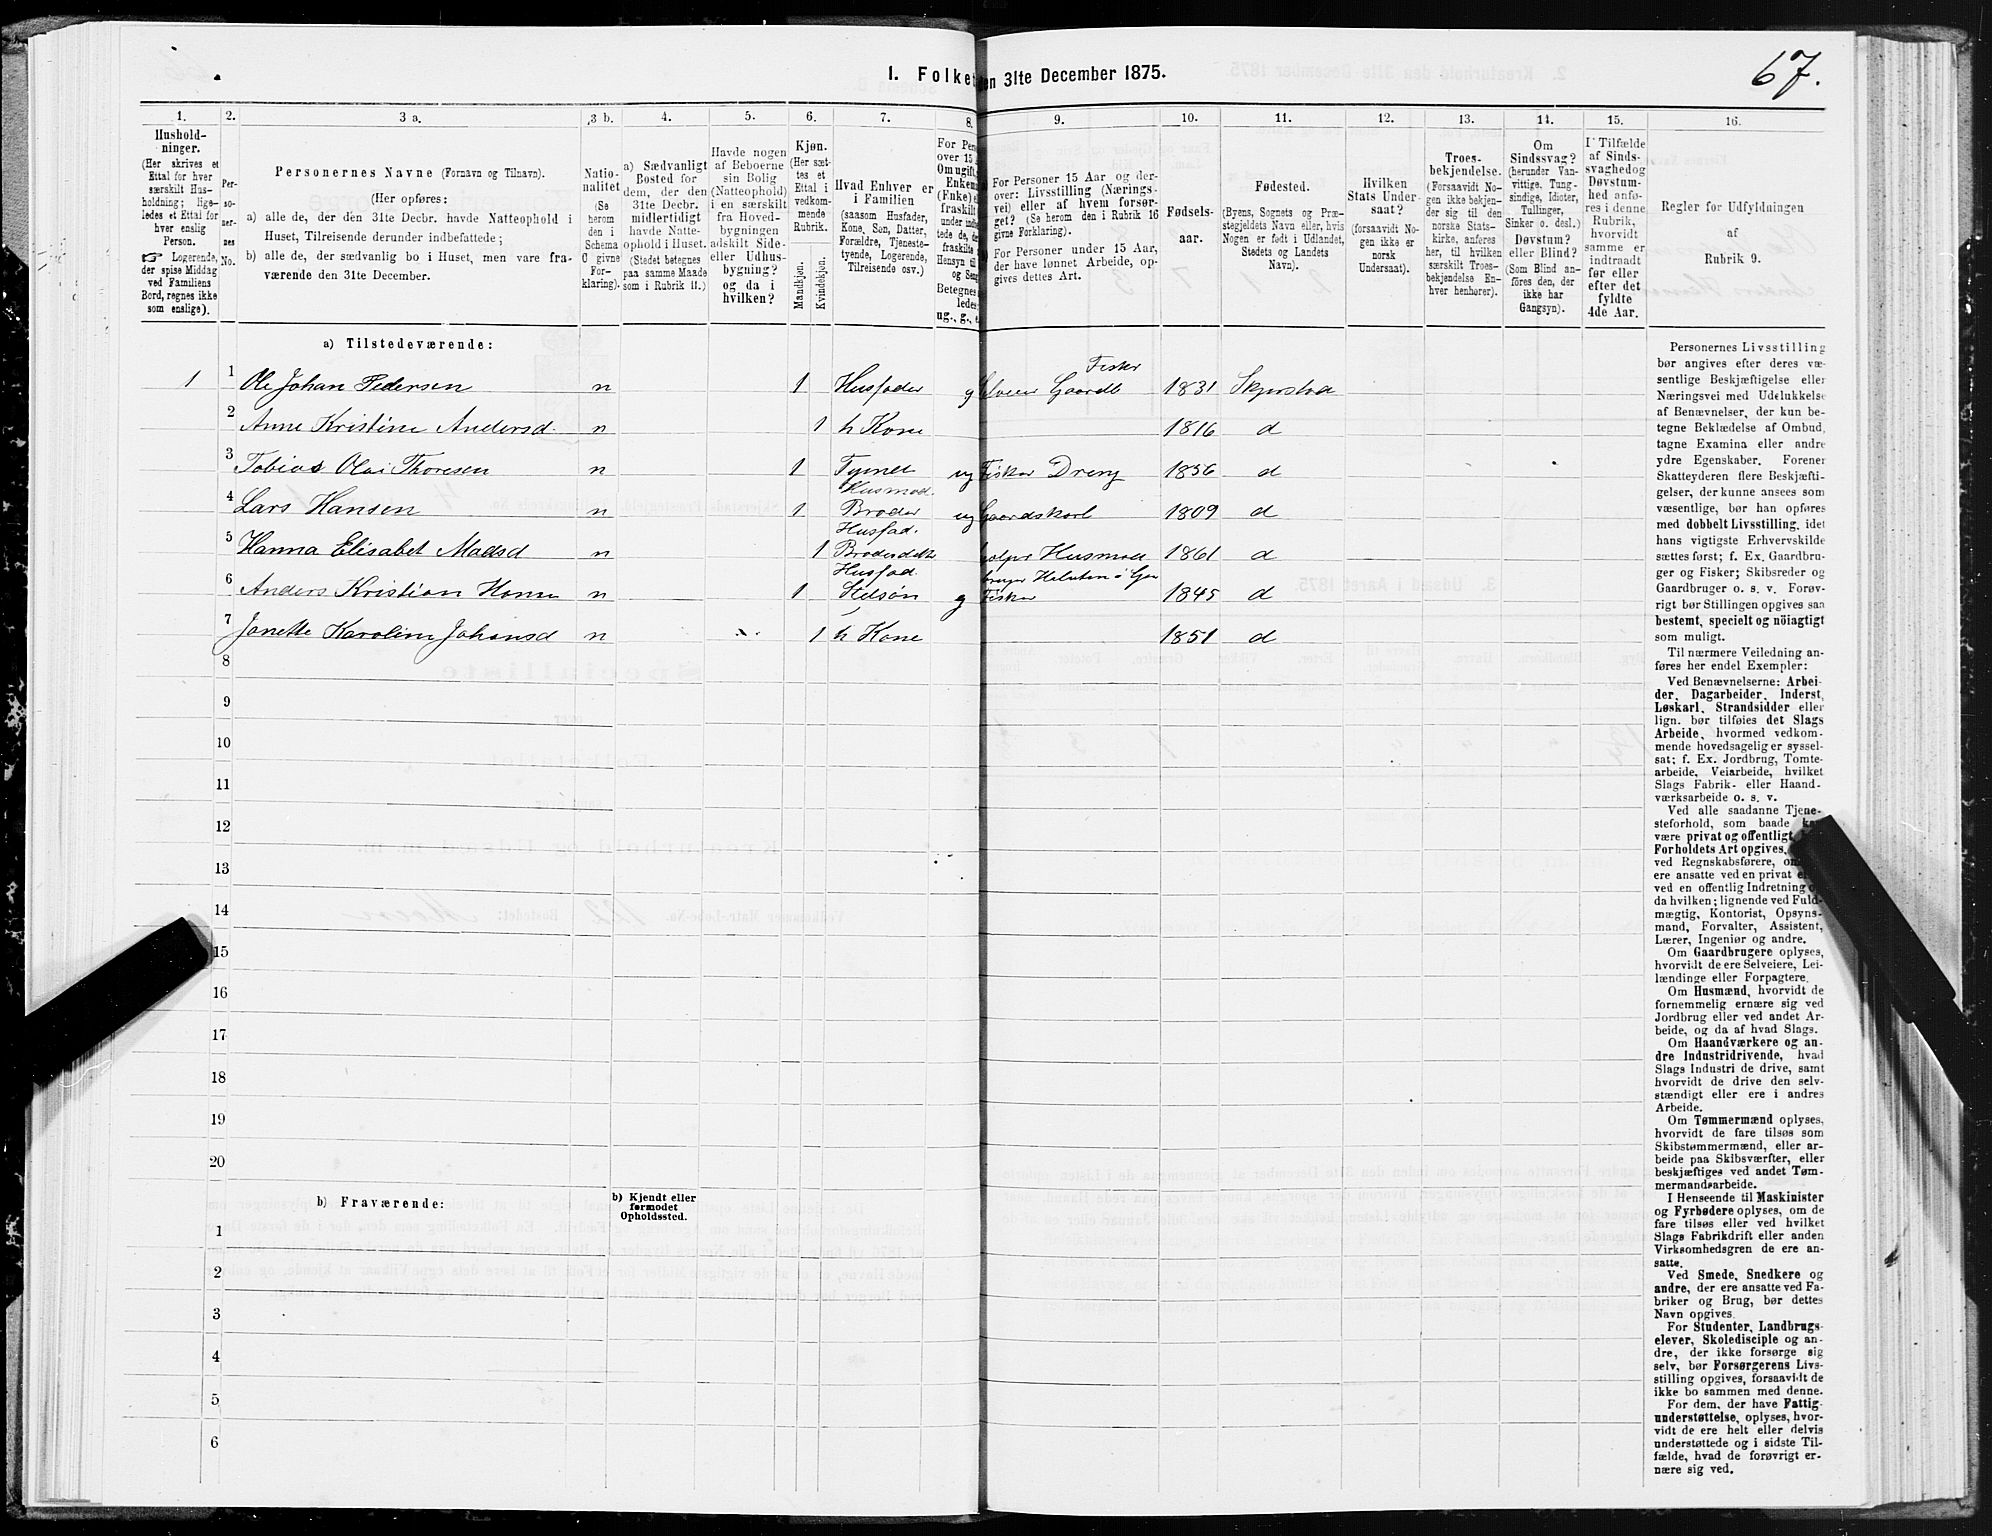 67.
1. Folket
den 31te December 1875.
1.
2.
3 a.
3 b.
4.
5.
6.
7.
8.
9.
10.
11.
12.
13.
14.
15.
16.
Hushold-
ninger.
(Her skrives et
Ettal for hver
særskilt Hus-
holdning; lige-
ledes et Ettal for
hver enslig
Person.
☞ Logerende,
der spise Middag
ved Familiens
Bord, regnes ikke
som enslige).
Per-
so-
ner-
nes
No.
Personernes Navne (Fornavn og Tilnavn).
(Her opføres:
a) alle de, der den 31te Decbr. havde Natteophold i
Huset, Tilreisende derunder indbefattede;
b) alle de, der sædvanlig bo i Huset, men vare fra-
værende den 31te December.
Natio-
nalitet
(Se
herom
den i
Schema
C givne
For-
klaring).
a) Sædvanligt
Bosted for
dem, der den
31te Decbr.
midlertidigt
havde Natte-
ophold i Huset.
(Stedet betegnes
paa samme Maade
som i Rubrik 11.)
Havde nogen
af Beboerne
sin Bolig
(Natteophold)
i en særskilt
fra Hoved-
bygningen
adskilt Side-
eller Udhus-
bygning?
og da i
hvilken?
Kjøn.
(Her sæt-
tes et
Ettal i
vedkom-
mende
Rubrik.
Mandkjøn.
Kvindekjøn.
Hvad Enhver er
i Familien
(saasom Husfader,
Kone, Søn, Datter,
Forældre, Tjeneste-
tyende, Logerende,
Tilreisende osv.)
For Pers
over 15 A
Om ugift,
Enkema
(Enke) e
fraskilt
under indbe
tede de, de
fraskilte
Hensyn til
og Seng
Betegnes
ledes:
ug., g., e
For Personer 15 Aar og der-
over: Livsstilling (Nærings-
vei) eller af hvem forsør-
get? (Se herom den i Rubrik 16
givne Forklaring).
For Personer under 15 Aar,
der have lønnet Arbeide, op-
gives dettes Art.
Fødsels-
aar.
Fødested.
(Byens, Sognets og Præ-
stegjeldets Navn eller, hvis
Nogen er født i Udlandet,
Stedets og Landets
Navn).
Hvilken
Stats Under-
saat?
(forsaavidt No-
gen ikke er
norsk
Undersaat).
Troes-
bekjendelse.
(Forsaavidt No-
gen ikke bekjen-
der sig til den
norske Stats-
kirke, anføres
her, til hvilken
særskilt Troes-
bekjendelse En-
hver henhører).
Om
Sindssvag?
(herunder Van-
vittige, Tung-
sindige, Idioter,
Tullinger,
Sinker o. desl.)
Døvstum?
eller Blind?
(Som Blind an-
føres den, der
ikke har
Gangsyn).
I Tilfælde
af Sinds-
svaghed og
Døvstum-
hed anfø-
res i denne
Rubrik.
hvorvidt
samme er
indtraadt
før eller
efter det
fyldte
4de Aar.
Regler for Udfyldningen
af
Rubrik 9.
a) Tilstedeværende:
1 1 Ole Johan Pedersen n 1 Husfader g Selveier Gaardb Fisker 1831 Skjerstad
2 Anne Kristine Andersd n 1 h Kone 1816 d
3 Tobias Olai Thoresen n 1 Tyende ug Fisker Dreng 1856 d
4 Lars Hansen n 1 Husmod. Broder ug Gaardskarl 1809 d
5 Hanna Elisabet Madsd n 1 Husfad. Brodersdatr hjelper Husmod 1861 d
6 Anders Kristian Hansen n 1 Husfad. Stedsøn g Fisker 1845 d
7 Janette Karoline Johansd n 1 h Kone 1851 d
8
9
10
11
12
13
14
15
16
17
18
19
20
b) Fraværende:
b) Kjendt eller
formodet
Opholdssted.
1
2
3
4
5
6
Personernes Livsstilling
bør angives efter deres væ-
sentlige Beskjæftigelse eller
Næringsvei med Udelukkelse
af Benævnelser, der kun be-
tegne Beklædelse af Ombud,
tagne Examina eller andre
ydre Egenskaber. Forener
Skatteyderen flere Beskjæfti-
gelser, der kunne ansees som
væsentlige, bør han opføres
med dobbelt Livsstilling, idet
hans vigtigste Erhvervskilde
sættes først; f. Ex. Gaardbru-
ger og Fisker; Skibsreder og
Gaardbruger o. s. v. Forøv-
rigt bør Stillingen opgives saa
bestemt, specielt og nöiagtigt
som muligt.
Til nærmere Veiledning an-
føres her endel Exempler:
Ved Benævnelserne: Arbei-
der, Dagarbeider, Inderst,
Løskarl, Strandsidder eller
lign. bør tilføies det Slags
Arbeide, hvormed vedkom-
mende hovedsagelig er syssel-
sat; f. Ex. Jordbrug, Tomte-
arbeide, Veiarbeide, hvilket
Slags Fabrik- eller Haand-
værksarbeide o. s. v.
Ved alle saadanne Tjene-
steforhold, som baade
være privat og offentligt,
Forholdets Art opgives,
ved Regnskabsførere,
ere ansatte ved en privat
ved en offentlig Indretning
da hvilken; lignende ved Fuld-
mægtig, Kontorist, Opsyns-
mand, Forvalter, Assistent,
Lærer, Ingeniør og andre.
Om Gaardbrugere oplyses,
hvorvidt de ere Selveiere, Lei-
lændinge eller Forpagtere.
Om Husmænd, hvorvidt de
fornemmelig ernære sig ved
Jordbrug eller ved andet Ar-
beide, og da af hvad Slags.
Om Haandværkere og an-
dre Industridrivende, hvad
Slags Industri de drive, samt
hvorvidt de drive den selv-
stændigt eller ere i andres
Arbeide.
Om Tømmermænd oplyses,
hvorvidt de fare tilsøs som
Skibstømmermænd, eller ar-
beide paa Skibsværfter, eller
beskjæftiges ved andet Tøm-
mermandsarbeide.
I Henseende til Maskinister
og Fyrbødere oplyses, om de
fare tilsøs eller ved hvilket
Slags Fabrikdrift eller anden
Virksomhedsgren de ere an-
satte.
Ved Smede, Snedkere og
andre, der ere ansatte ved Fa-
briker og Brug, bør dettes
Navn opgives.
For Studenter, Landbrugs-
elever, Skoledisciple og an-
dre, der ikke forsørge sig
selv, bør Forsørgerens Livs-
stilling opgives, forsaavidt de
ikke bo sammen med denne.
For dem, der have Fattig-
understøttelse, oplyses, hvor-
vidt de ere helt eller delvis
understøttede og i sidste Til-
fælde, hvad de forøvrigt er-
nære sig ved.